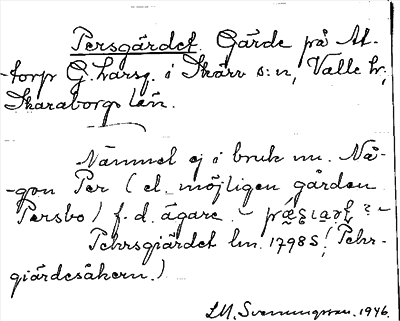 Persgärdet. Gärde på At-
torp G. Larsg. i Skärv s:n, Valle hr;
Skaraborgs län.
Namnet ej i bruk nu. Nå-
gon Per (el. möjligen gården
Persbo) f.d. ägare. -
Pehrsgiärdet lm. 1798 S! Pehr-
giärdesåkern.)
Svenungsson. 1946.